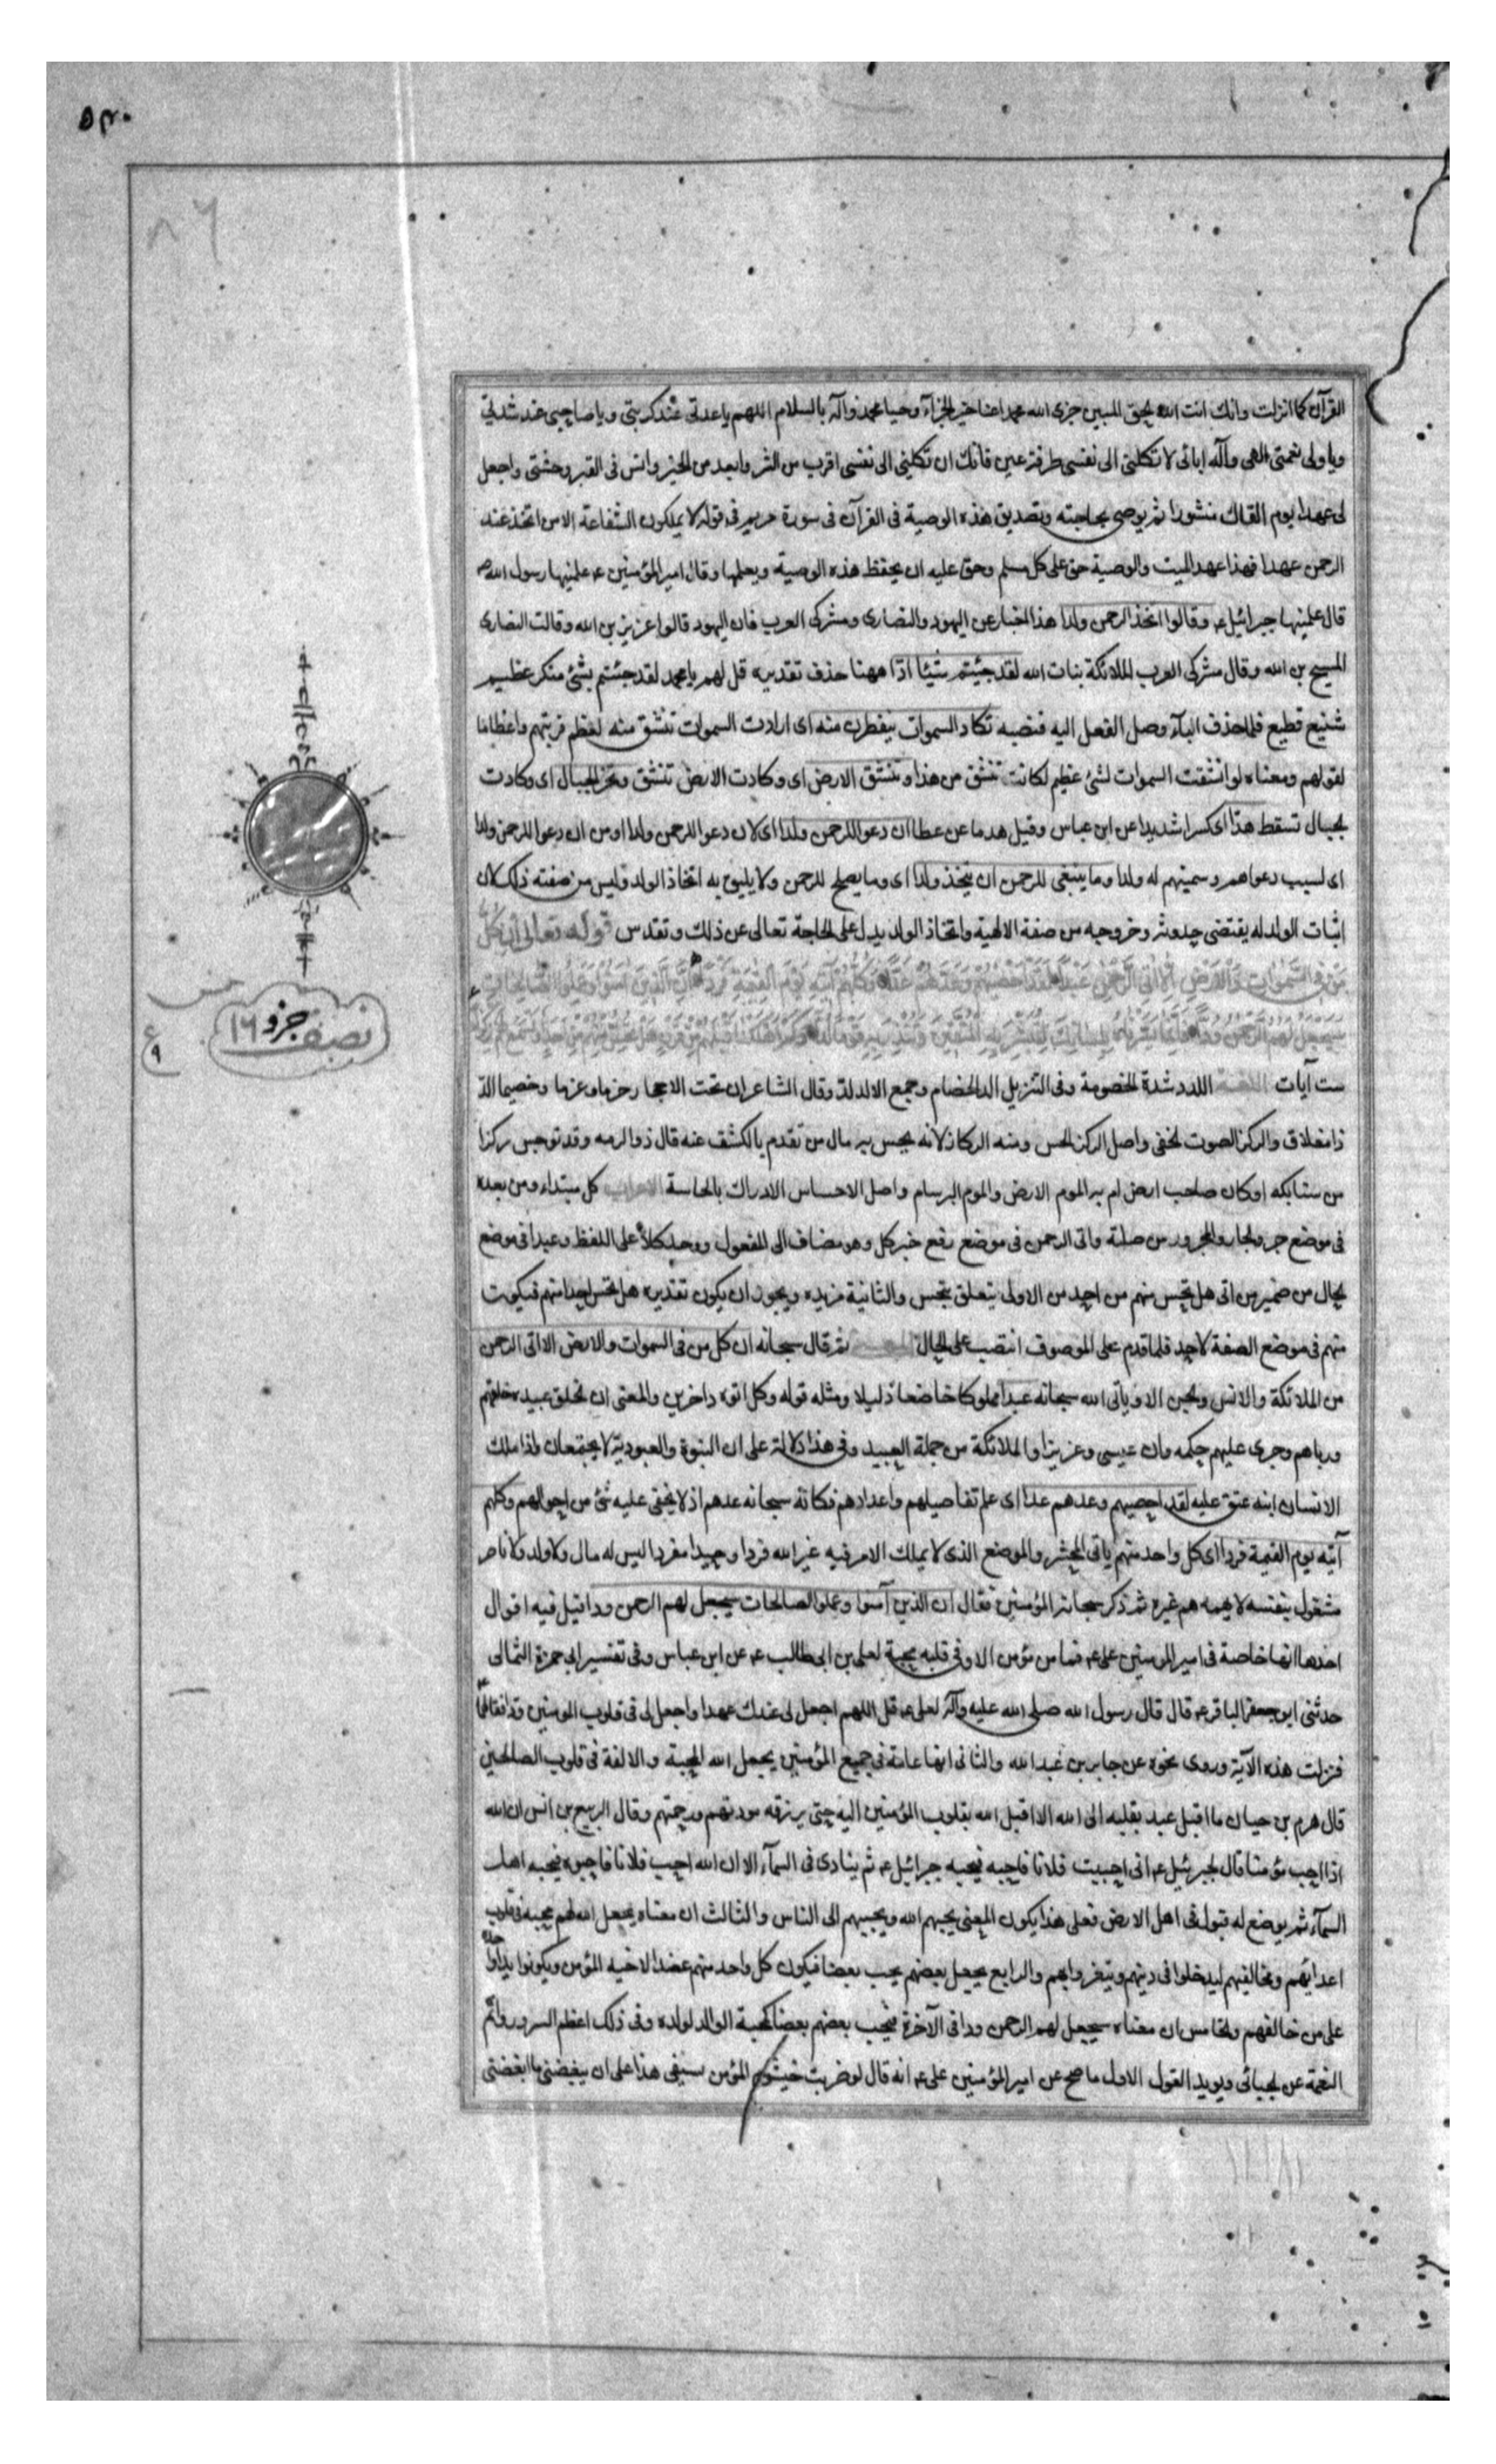 ٥٣٠
القرآن كما انزلت وانك انت الله الحق المبين جزى الله محمدا عنا خير الجزآء وحيا محمدا وآله بالسلام اللهم يا عدتى عند كربتى ويا صاحبى عند شدتى
ويا ولى نعمتى الهى وآله ابائى لا تكلنى الى نفسى طرفة عين فانك ان تكلنى الى نفسى اقرب من الشر وابعد من الخير وانس فى القبر وحشتى واجعل
لى عهدا يوم القاك منشورا ثم يوصى بحاجته وتصديق هذه الوصية فى القرآن فى سورة مريم فى قوله لا يملكون الشفاعة الا من اتخذ عند
الرحمن عهدا فهذا عهد الميت والوصية حق على كل مسلم وحق عليه ان يحفظ هذه الوصية ويعلمها وقال امير المؤمنين ع علمنيها رسول الله ص
قال علمنيها جبرائيل ع وقالوا اتخذ الرحمن ولدا هذا اخبار عن اليهود والنصارى ومشركى العرب فان اليهود قالوا عزيز بن الله وقالت النصارى
المسيح بن الله وقال مشركى العرب الملائكة بنات الله لقد جئتم شيئا ادا ههنا حذف تقديره قل لهم يا محمد لقد جئتم بشئ منكر عظيم
شنيع فظيع فلما حذف البآء وصل الفعل اليه فنصبه تكاد السموات يتفطرن منه اى ارادت السموات تنشق منه لعظم فريتهم واعظاما
لقولهم ومعناه لو انشقت السموات لشئ عظيم لكانت تنشق من هذا وتنشق الارض اى وكادت الارض تنشق وتخر الجبال اى وكادت
الجبال تسقط هدا اى كسرا شديدا عن ابن عباس وقيل هدما عن عطا ان دعوا للرحمن ولدا اى لان دعوا للرحمن ولدا او من ان دعوا للرحمن ولدا
اى لسبب دعواهم وسميتهم له ولدا وما ينبغى للرحمن ان يتخذ ولدا اى وما يصلح للرحمن ولا يليق به اتخاذ الولد وليس من صفته ذلك لان
اثبات الولد له يقتضى حدوثه وخروجه من صفة الالهية واتخاذ الولد يدل على الحاجة تعالى عن ذلك وتقدس قوله تعالى ان كل
من فى السموات والارض الا اتى الرحمن عبدا لقد احصيهم وعدهم عدا وكلهم آتيه يوم القيمة فردا ان الذين آمنوا وعملوا الصالحات
سيجعل لهم الرحمن ودا فانما يسرناه بلسانك لتبشر به المتقين وتنذر به قوما لدا وكم اهلكنا قبلهم من قرن هل تحس منهم من احد او تسمع لهم ركزا
ست آيات اللغة اللدد شدة الخصومة وفى التنزيل الد الخصام وجمع الالد لد وقال الشاعر ان تحت الاحجار حزما وعزما وخصيما الد
ذا مغلاق والركز الصوت الخفى واصل الركز الحس ومنه الركاز لانه يحس به مال من تقدم بالكشف عنه قال ذو الرمه وقد توجس ركزا
من سنابكه او كان صاحب ارض ام به الموم الارض والموم البرسام واصل الاحساس الادراك بالحاسة الاعراب كل مبتداء ومن بعده
فى موضع جر والجار والمجرور من صلته واتى الرحمن فى موضع رفع خبر كل وهو مضاف الى المفعول ووحد كلا على اللفظ وعبدا فى موضع
الحال من ضمير من اتى هل تحس منهم من احد من الاولى يتعلق بتحس والثانية مزيده ويجوز ان يكون تقديره هل تحس احدا منهم فيكون
منهم فى موضع الصفة لاحد فلما قدم على الموصوف انتصب على الحال المعنى ثم قال سبحانه ان كل من فى السموات والارض الا اتى الرحمن
من الملائكة والانس والجن الا وياتى الله سبحانه عبدا مملوكا خاضعا ذليلا ومثله قوله وكل اتوه داخرين والمعنى ان الخلق عبيده خلقهم
ورباهم وجرى عليهم حكمه وان عيسى وعزيزا والملائكة من جملة العبيد وفى هذا دلالة على ان البنوة والعبودية لا يجتمعان واذا ملك
الانسان ابنه عتق عليه لقد احصيهم وعدهم عدا اى علم تفاصيلهم واعدادهم فكانه سبحانه عدهم اذ لا يخفى عليه شئ من احوالهم وكلهم
آتيه يوم القيمة فردا اى كل واحد منهم ياتى المحشر والموضع الذى لا يملك الامر فيه غير الله فردا وحيدا مفردا ليس له مال ولا ولد ولا ناصر
مشغول بنفسه لا يهمه هم غيره ثم ذكر سبحانه المؤمنين فقال ان الذين آمنوا وعملوا الصالحات سيجعل لهم الرحمن ودا قيل فيه اقوال
احدها انها خاصة فى امير المؤمنين على ع فما من مؤمن الا وفى قلبه محبة لعلى بن ابى طالب ع عن ابن عباس وفى تفسير ابى حمزة الثمالى
حدثنى ابو جعفر الباقر ع قال قال رسول الله صلى الله عليه وآله لعلى ع قل اللهم اجعل لى عندك عهدا واجعل لى فى قلوب المومنين ودا فقالهما
فنزلت هذه الآية وروى نحوه عن جابر بن عبد الله والثانى انها عامة فى جميع المؤمنين يجعل الله المحبة والالفة فى قلوب الصالحين
قال هرم بن حيان ما اقبل عبد بقلبه الى الله الا اقبل الله بقلوب المؤمنين اليه حتى يرزقه مودتهم ورحمتهم وقال الربيع بن انس ان الله
اذا احب مؤمنا قال لجبرئيل ع انى احببت فلانا فاحبه فيحبه جبرائيل ع ثم ينادى فى السمآء الا ان الله احب فلانا فاحبوه فيحبه اهل
السمآء ثم يوضع له قبول فى اهل الارض فعلى هذا يكون المعنى يحبهم الله ويحببهم الى الناس والثالث ان معناه يجعل الله لهم محبة فى قلوب
اعدائهم ومخالفيهم ليدخلوا فى دينهم ويتعززوا بهم والرابع يجعل بعضهم يحب بعضا فيكون كل واحد منهم عضدا لاخيه المؤمن ويكونوا يدا واحدة
على من خالفهم والخامس ان معناه سيجعل لهم الرحمن ودا فى الآخرة فيحب بعضهم بعضا كمحبة الوالد لولده وفى ذلك اعظم السرور واتم
النعمة عن الجبائى ويويد القول الاول ما صح عن امير المؤمنين على ع انه قال لو ضربت خيشوم المؤمن بسيفى هذا على ان يبغضنى ما ابغضنى
نصف جزو ١٦